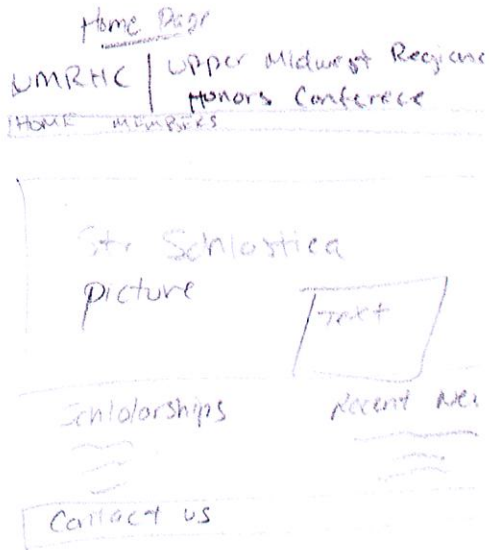 Home Page
UMRHC | Upper Midwest Regiona
Honors Conferece
HOME MEMBERS
St. Schlostica
picture
Text
Schlolorships
Recent Ne
Contact us